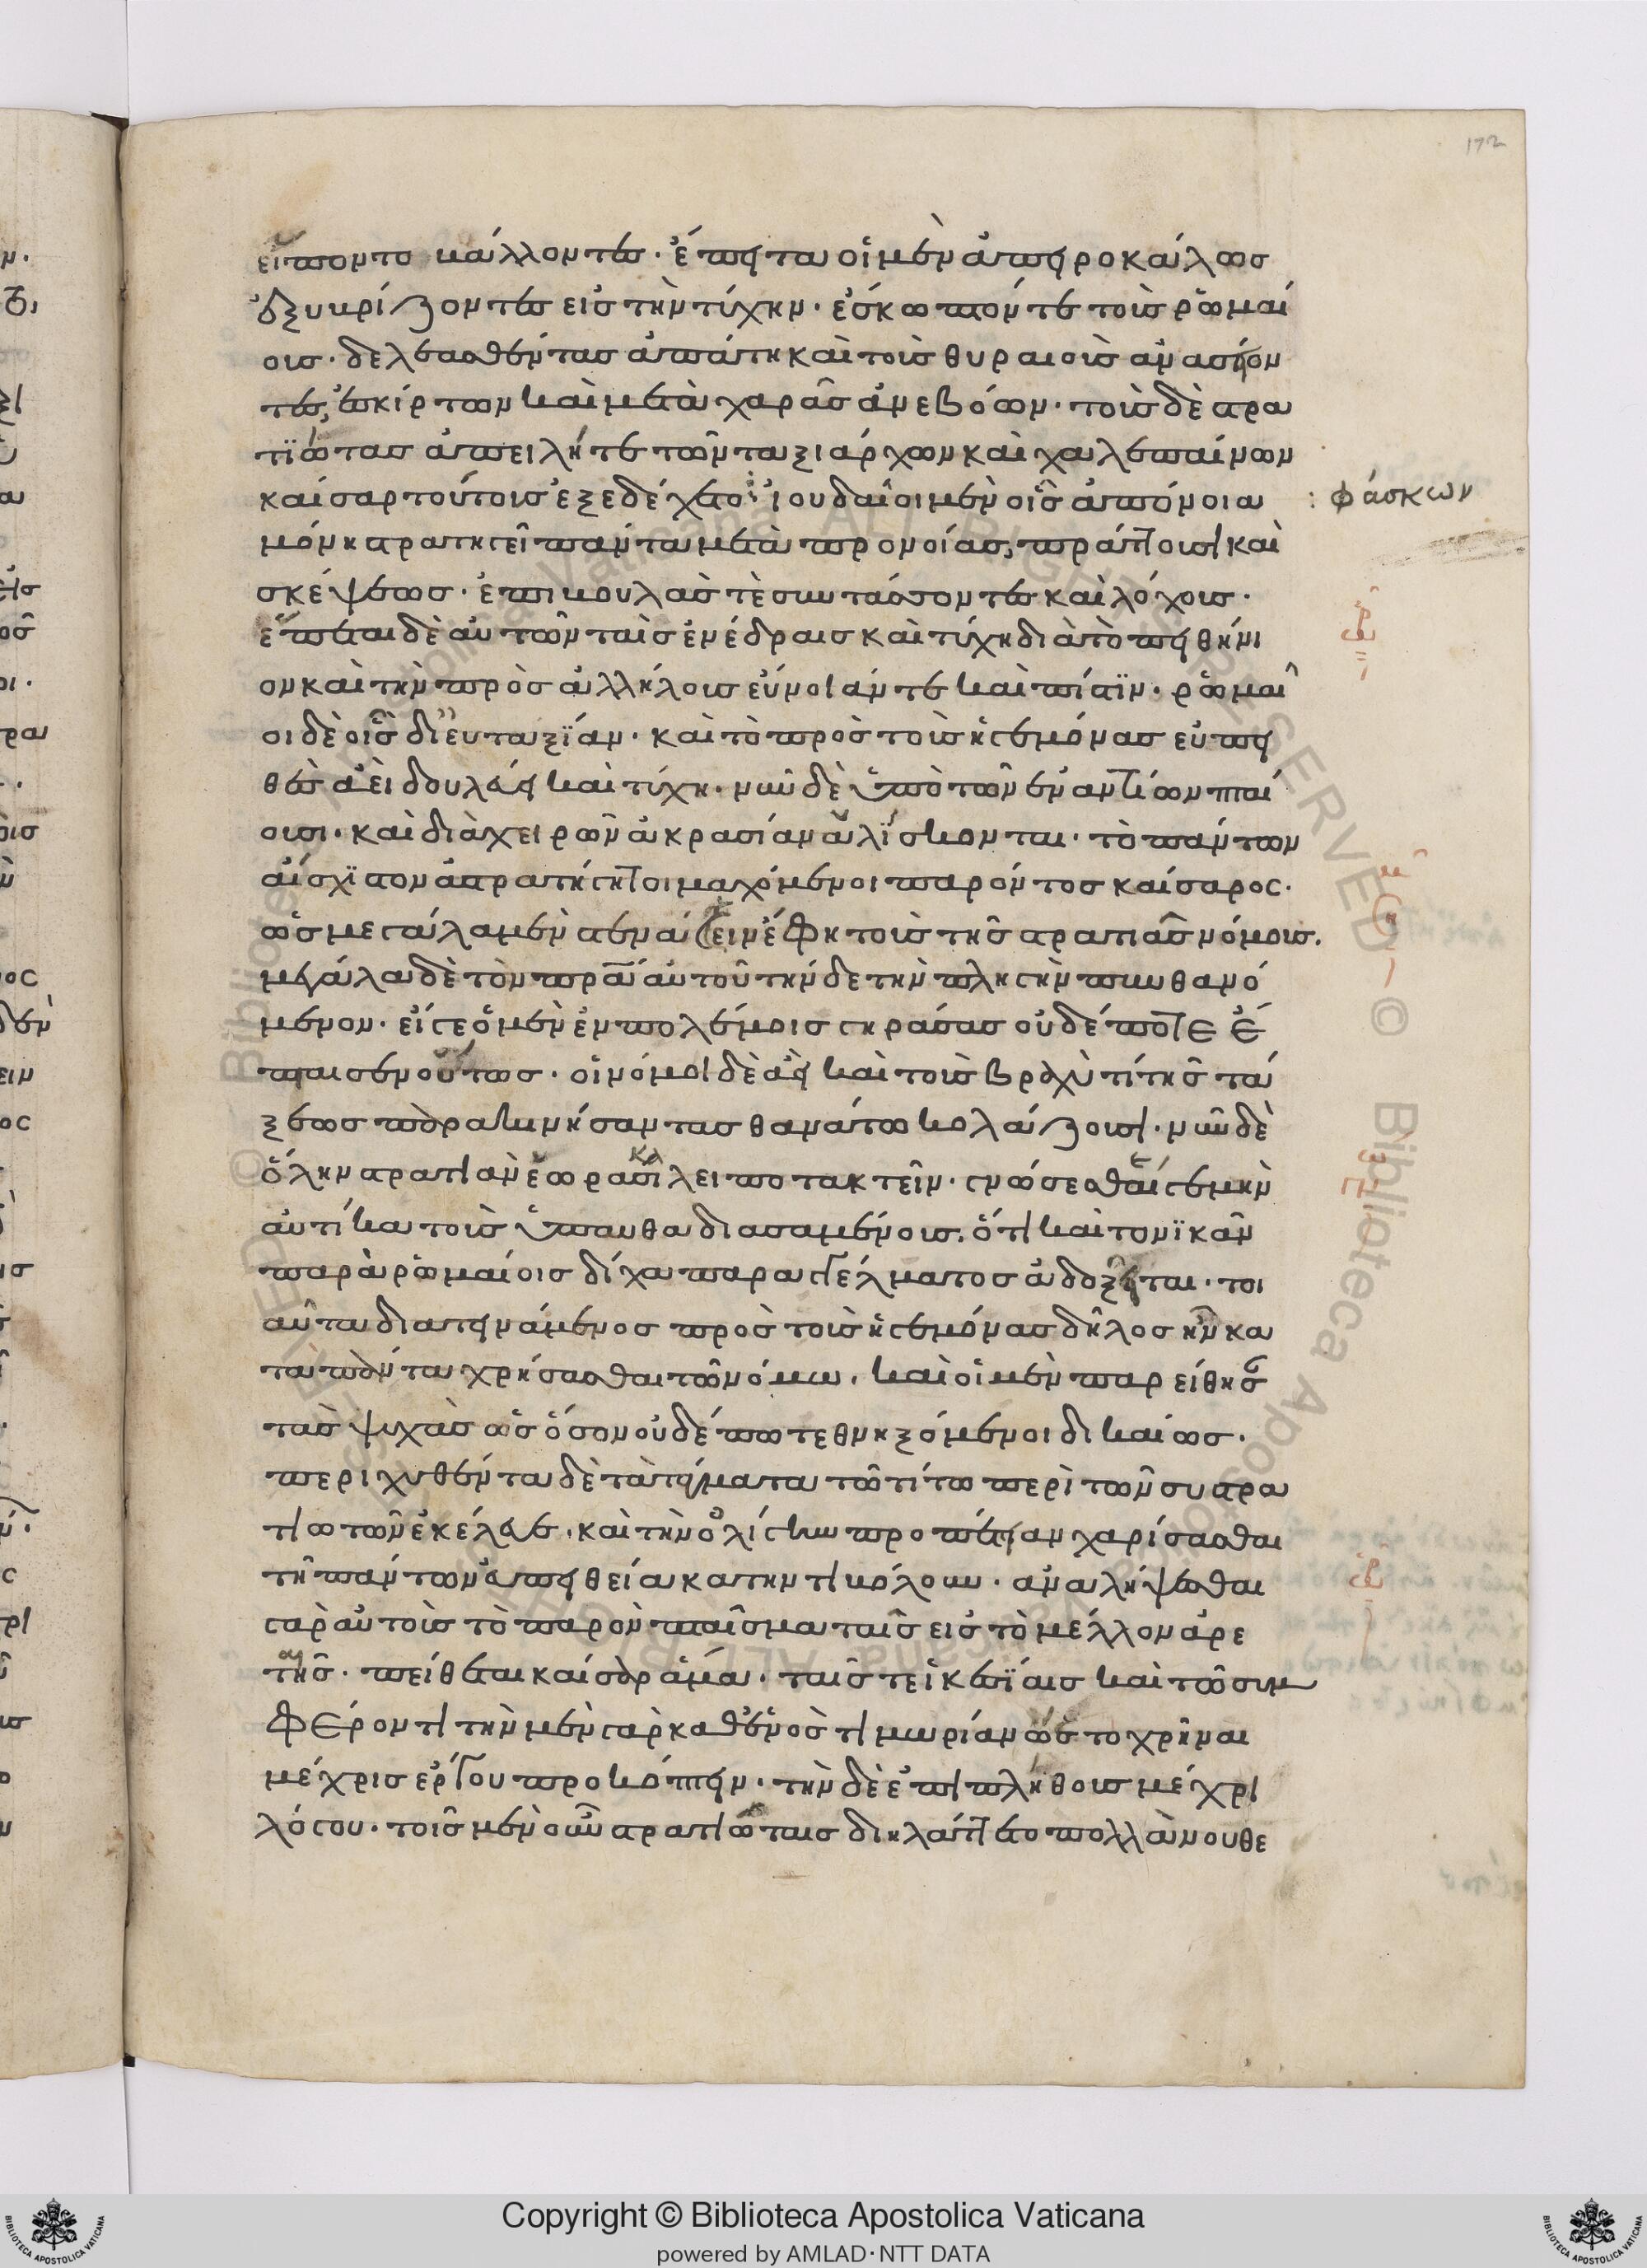 εἵποντο βάλλοντες· ἔπειτα οἱ μὲν ἀπειροκάλως
ἐξυβρίζοντες εἰς τὴν τύχην· ἐσκωπτόν τε τοὺς ῥωμαί
ους· δελεασθέντας ἀπάτη καὶ τοὺς θυραιοὺς ἀνασείον
τες, ἐσκίρτων καὶ μετὰ χαρᾶς ἀνεβόων· τοὺς δὲ στρα
τιώτας ἀπειλή τε τῶν ταξιάρχων καὶ χαλεπαίνων
καίσαρ τούτοις ἐξεδέχετο : ἰουδαῖοι μὲν οἷς ἀπόνοια : φάσκων
μόνη στρατηγεῖ πάντα μετὰ προνοίας, πράττουσι καὶ
σκέψεως· ἐπιβουλὰς τὲ συντάσσοντες καὶ λόχους·
ἕπεται δὲ αὐτῶν ταῖς ἐνέδραις καὶ τύχη διὰ τὸ πειθήνι
ον καὶ τὴν πρὸς ἀλλήλους εὔνοιάν τε καὶ πίστιν· ῥωμαῖ
οι δὲ οἷς δι' εὐταξίαν· καὶ τὸ πρὸς τοὺς ἡγεμόνας εὐπει
θὲς ἀεὶ δουλεύει καὶ τύχη· νῦν δὲ ὑπὸ τῶν ἐναντίων πταί
ουσι· καὶ διὰ χειρῶν ἀκρασίαν ἁλίσκονται· τὸ πάντων
αἴσχιστον ἀστρατήγητοι μαχόμενοι παρόντος καίσαρος·
ὡς μεγάλα μὲν στενάζειν ἔφη τοὺς τῆς στρατιᾶς νόμους.
μεγάλα δὲ τὸν πρα αὐτοῦ τήνδε τὴν πληγὴν πυθανό
μενον· εἴγε ὁ μὲν ἐν πολέμοις γηράσας οὐδέποτε ἔ
πταισεν οὕτως· οἱ νόμοι δὲ ἀεὶ καὶ τοὺς βραχύ τι τῆς τά
ξεως παρακινήσαντας θανάτω κολάζουσι· νῦν δὲ
ὅλην στρατιὰν ἑωράκασι λειποτακτεῖν· γνώσεσθαί γε μὴν
αὐτίκα τοὺς ὑπαυθαδιασαμένους· ὅτι καὶ το νικᾶν
παρὰ ῥωμαίοις δίχα παραγγέλματος ἀδοξεῖται· τοι
αῦτα διατεινάμενος πρὸς τοὺς ἡγεμόνας δῆλος ἦν κα
τὰ πάντα χρήσασθαι τῶ νόμω· καὶ οἱ μὲν παρείθησ
τὰς ψυχὰς ὡς ὅσον οὐδέπω τεθνηξόμενοι δικαίως·
περιχυθέντα δὲ τὰ τάγματα τῶ τίτω περὶ τῶν συστρα
τιωτῶν ἐκέλευε· καὶ τὴν ὀλίγων προπέτειαν χαρίσασθαι
τῆ πάντων εὐπειθεία κατηντιβόλουν· ἀναλήψεσθαι
γὰρ αὐτοὺς τὸ παρὸν πταῖσμα ταῖς εἰς τὸ μέλλον ἀρε
ταῖς· πείθεται καίσαρ ἅμα· ταῖς τε ἱκεσίαις καὶ τῶ συμ
φέροντι τὴν μὲν γὰρ καθενὸς τιμωρίαν ὤετο χρῆναι
μέχρις ἔργου προκόπτειν· τὴν δὲ ἐπὶ πλήθους μέχρι
λόγου· τοῖς μὲν οὖν στρατιώταις διηλάττετο πολλὰ νουθε
172